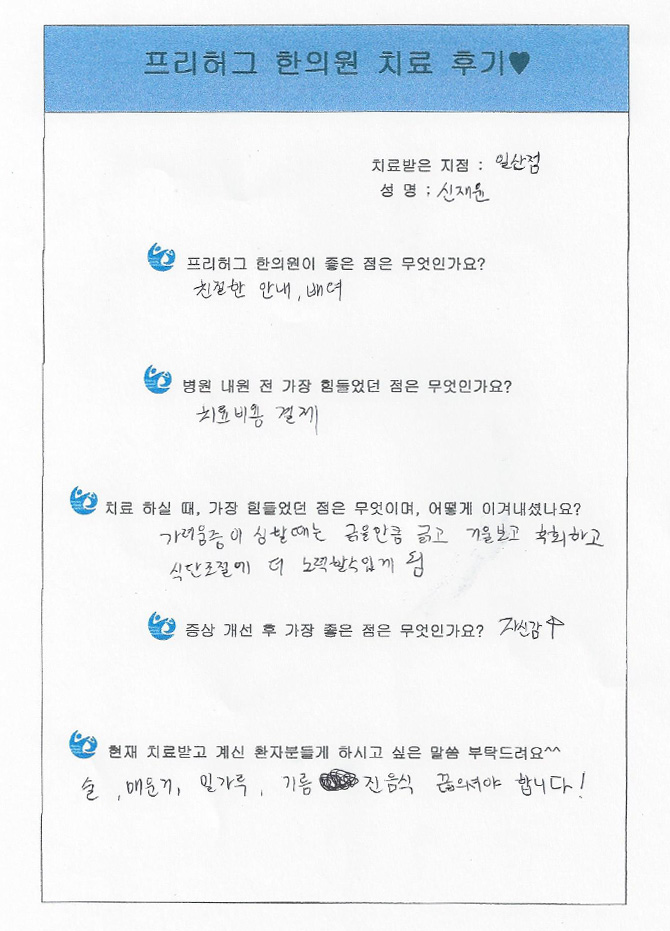 프리허그 한의원 치료 후기♥
치료받은 지점 : 일산점
성 명 : 신재윤
프리허그 한의원이 좋은 점은 무엇인가요?
친절한 안내, 배려
병원 내원 전 가장 힘들었던 점은 무엇인가요?
치료비용 결제
치료 하실 때, 가장 힘들었던 점은 무엇이며, 어떻게 이겨내셨나요?
가려움증이 심할때는 긁을만큼 긁고 거울보고 후회하고
식단조절에 더 노력할수있게 됨
증상 개선 후 가장 좋은 점은 무엇인가요? 자신감↑
현재 치료받고 계신 환자분들게 하시고 싶은 말씀 부탁드려요^^
술, 매운거, 밀가루, 기름 진음식 끊으셔야 합니다!